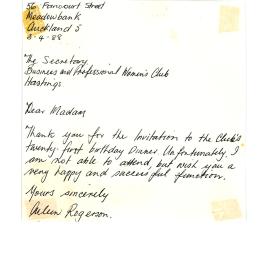 56 Fancourt Street
Meadowbank
Auckland 5
8-4-88
The Secretary
Business and Professional Women's Club
Hastings
Dear Madam
Thank you for the Invitation to the Club's
twenty first birthday Dinner. Unfortunately I
am not able to attend, but wish you a
very happy and successful function.
Yours sincerely
Aileen Rogerson.